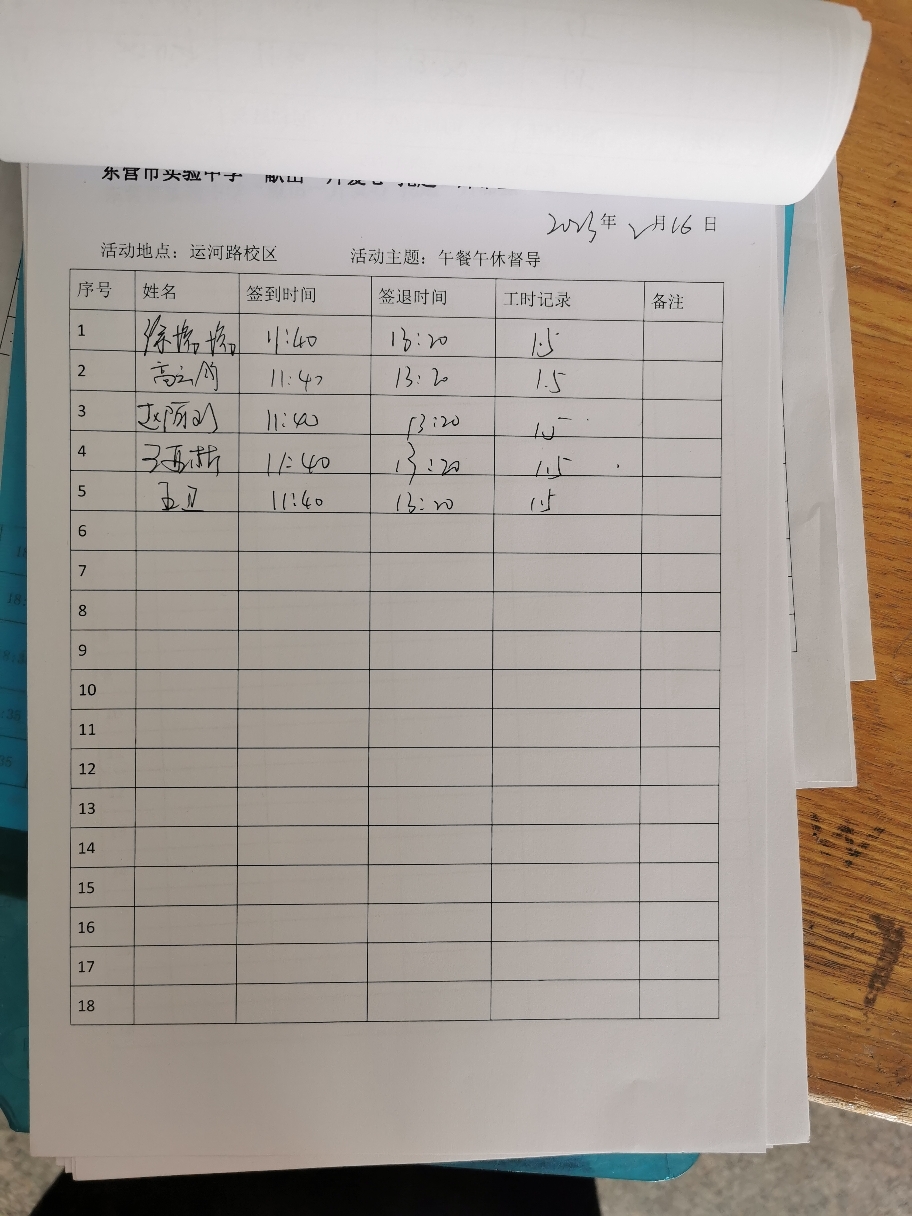 东营市实验中学
2023年2月16日
活动地点：运河路校区 活动主题：午餐午休督导
序号 姓名 签到时间 签退时间 工时记录 备注
1 11:40 13:20 1.5
2 11:40 13:20 1.5
3 11:40 13:20 1.5
4 11:40 13:20 1.5
5 王卫 11:40 13:20 1.5
6
7
8
9
10
11
12
13
14
15
16
17
18